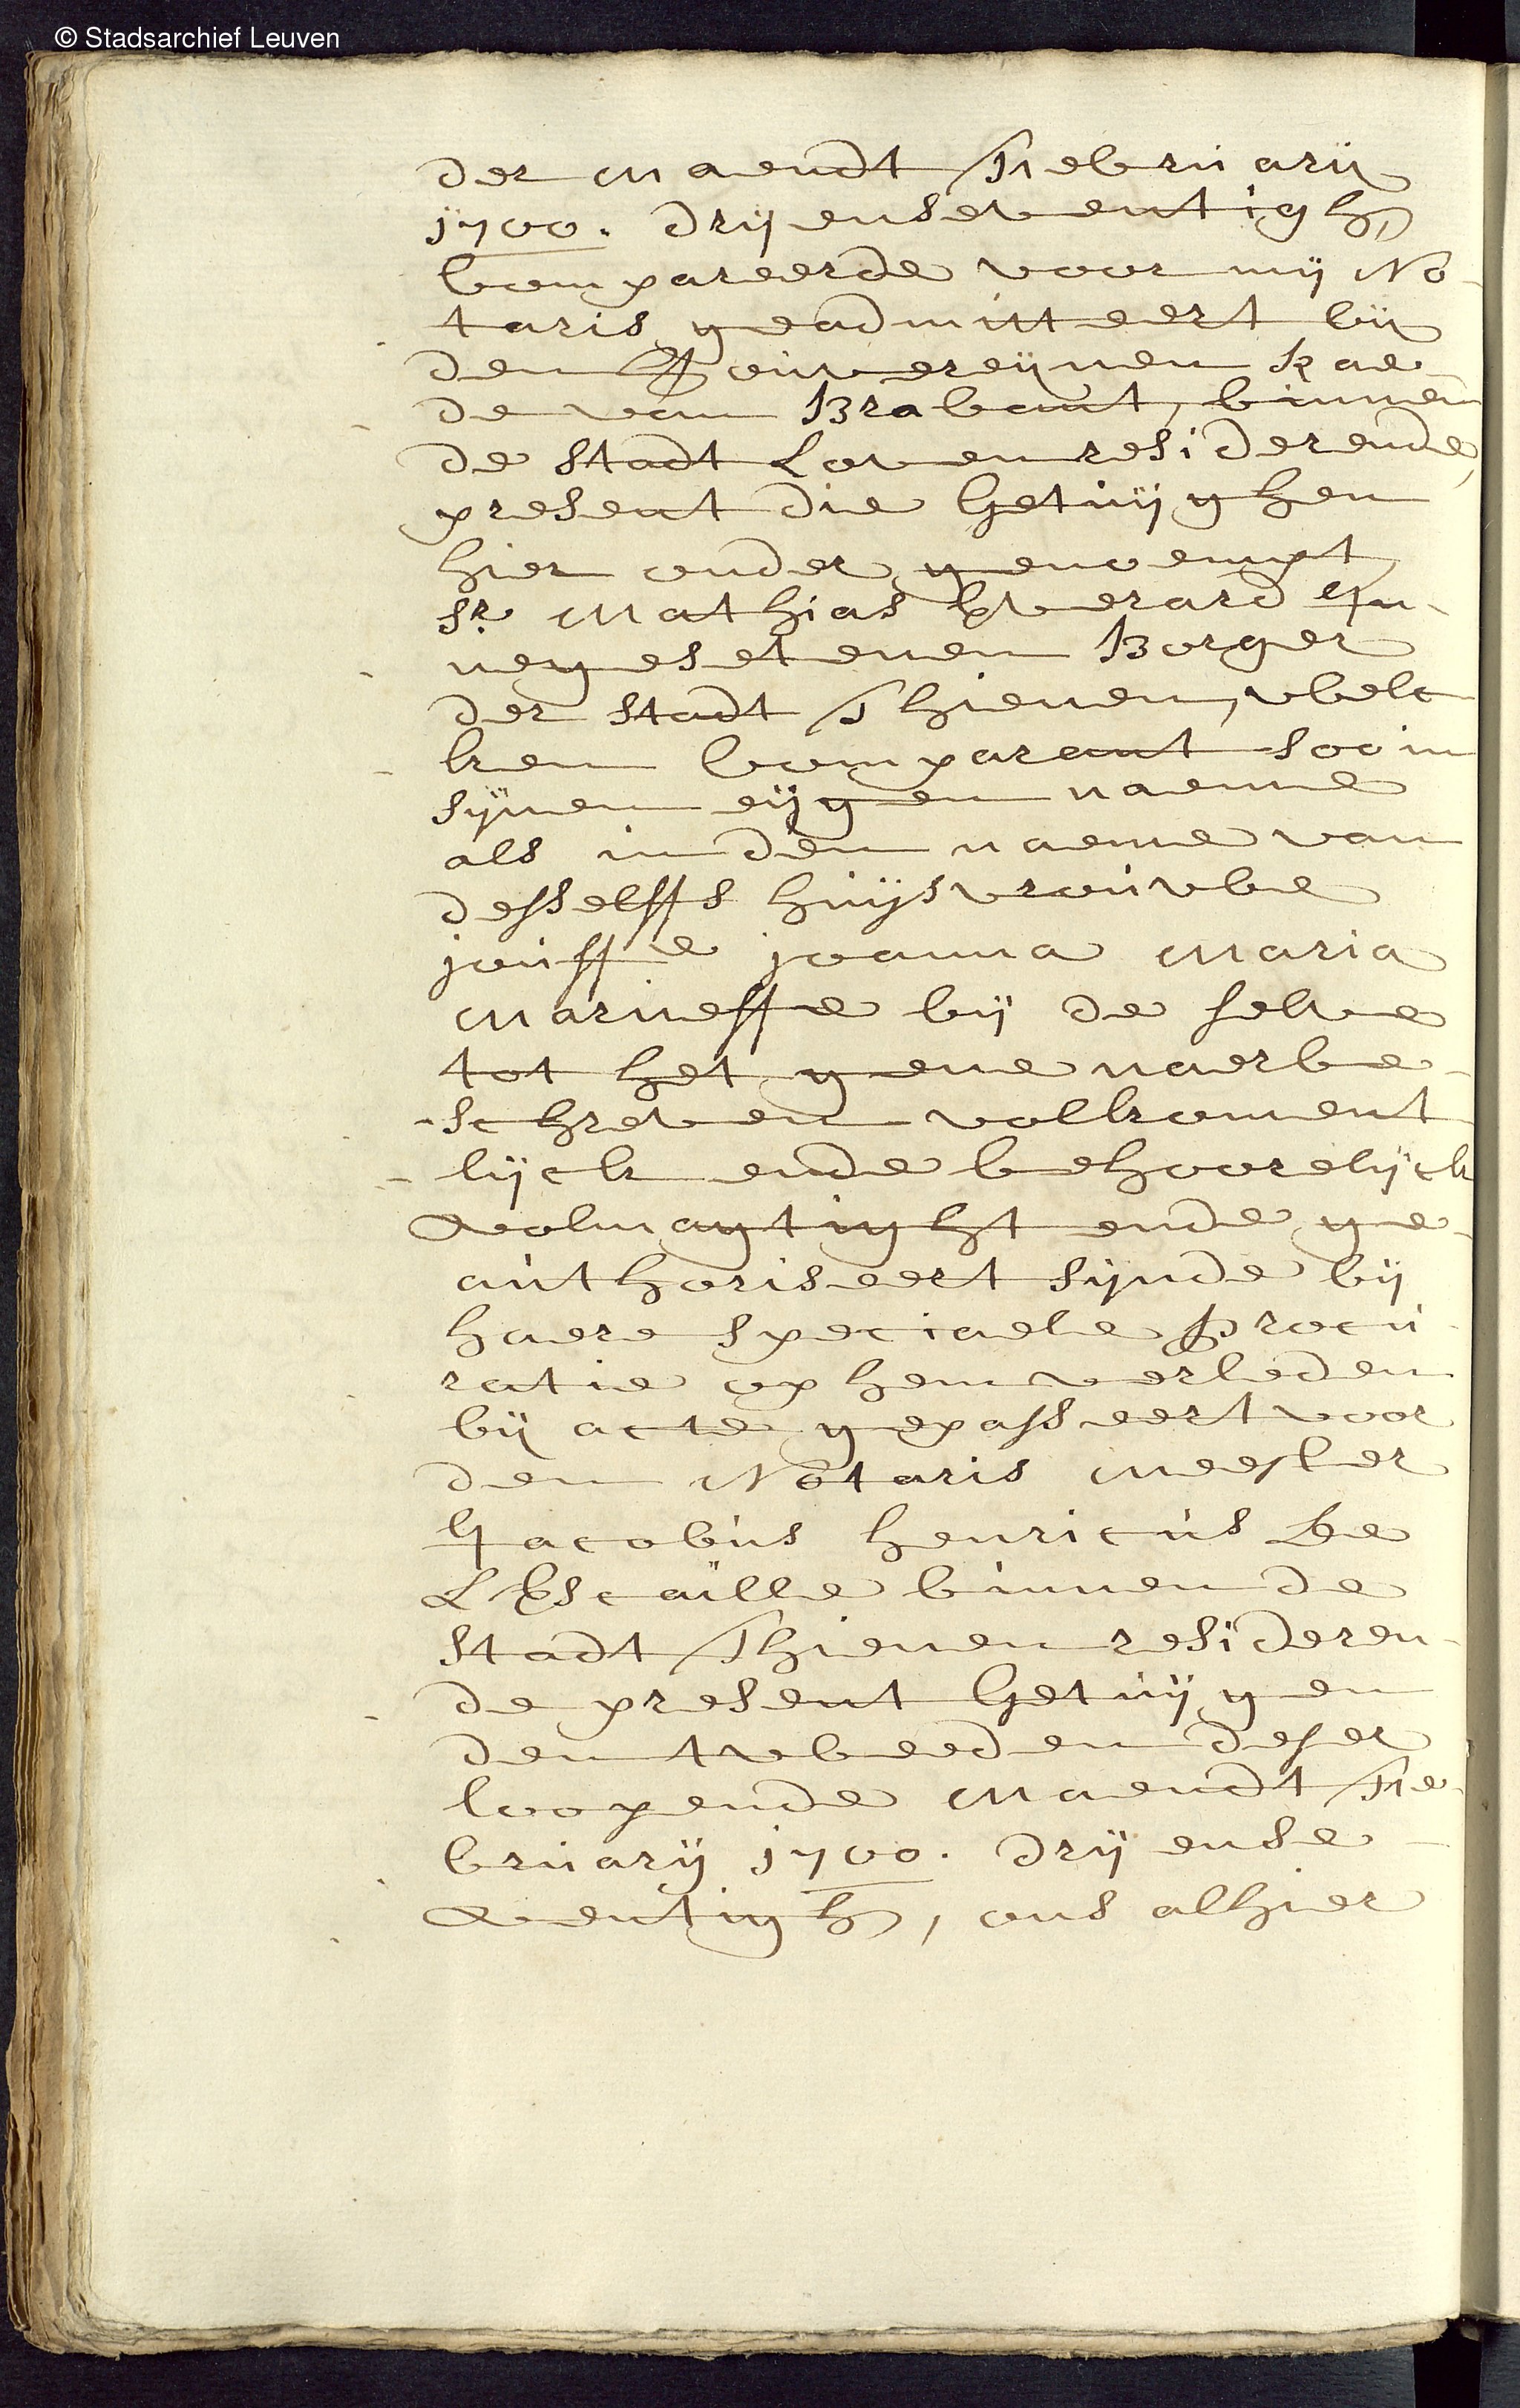 © Stadsarchief Leuven
der maendt Februarij
1700. drij enseventigh,
Compareerde voor mij No-
taris geadmitteert bij
den Souvereijnen Rae-
de van Brabant, binnen
de stadt Loven residerende,
present die Getuijghen
hier onder genoempt
Sr. Mathias Everard In-
negesetenen Borger
der stadt Thienen, welc-
ken Comparant soo in
sijnen eijgen naeme
als in den naeme van
desselffs huijsvrouwe
jouffe joanna Maria
Marneffe bij de selve
tot het gene naerbe-
-schreven volkoment
-lijck ende behoorelijck
volmagtight ende ge-
authoriseert sijnde bij
haere speciaele Procu-
ratie op hem verleden
bij acte gepasseert voor
den Notaris Meester
Jacobus Henricus De
L'Escaille binnen de
stadt Thienen resideren-
de present Getuijgen
den tweeden deser
loopende Maendt Fe-
bruarij 1700. drij ense-
ventigh, ons alhier